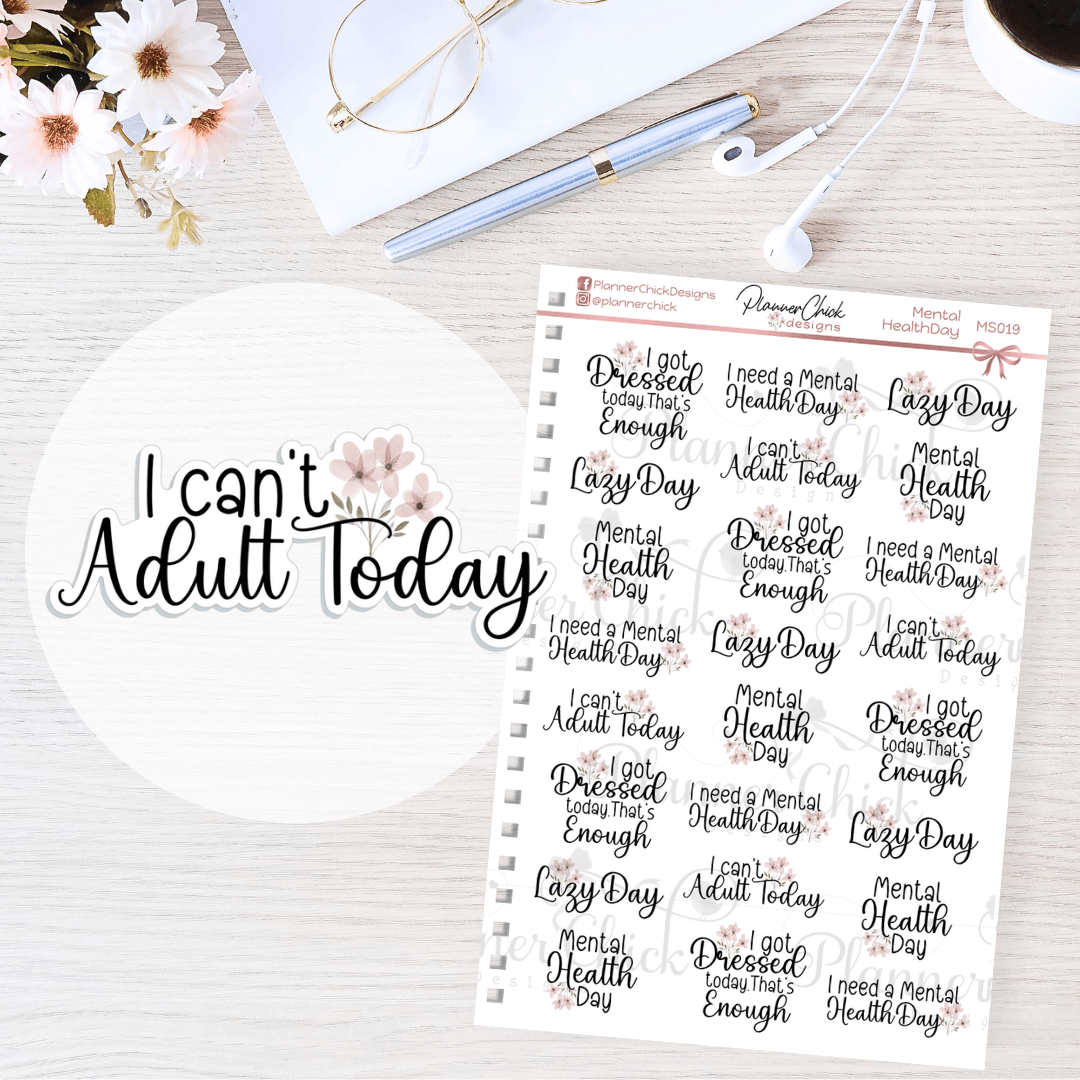 PlannerChickDesigns
@plannerchick
PlannerChick
designs
Mental
HealthDay
MS019
I can't
Adult Today
I got
Dressed
today.That's
Enough
I need a Mental
Health Day
Lazy Day
Lazy Day
I can't
Adult Today
Mental
Health
Day
Mental
Health
Day
I got
Dressed
today.That's
Enough
I need a Mental
Health Day
I need a Mental
Health Day
Lazy Day
I can't
Adult Today
I can't
Adult Today
Mental
Health
Day
I got
Dressed
today.That's
Enough
I got
Dressed
today.That's
Enough
I need a Mental
Health Day
Lazy Day
Lazy Day
I can't
Adult Today
Mental
Health
Day
Mental
Health
Day
I got
Dressed
today.That's
Enough
I need a Mental
Health Day